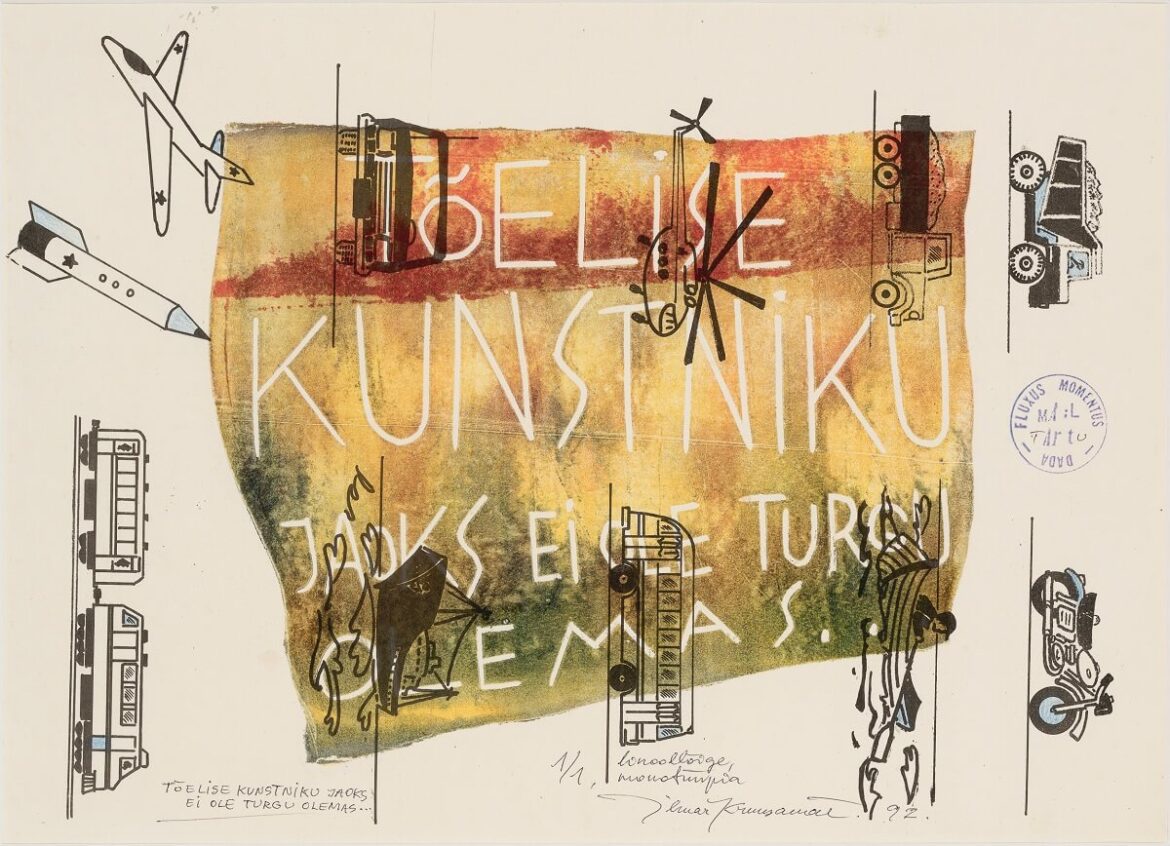 TõELiSE
KUNSTNiKU
JAOKS Ei OLE TURGU
OLEMAS...
FLUXUS MOMENTUS
MAiL
TArtu
DADA
TõELISE KUNSTNIKU JAOKS
EI OLE TURGU OLEMAS...
1/1, linoollõige,
monotüüpia
Ilmar Kruusamäe. 92.